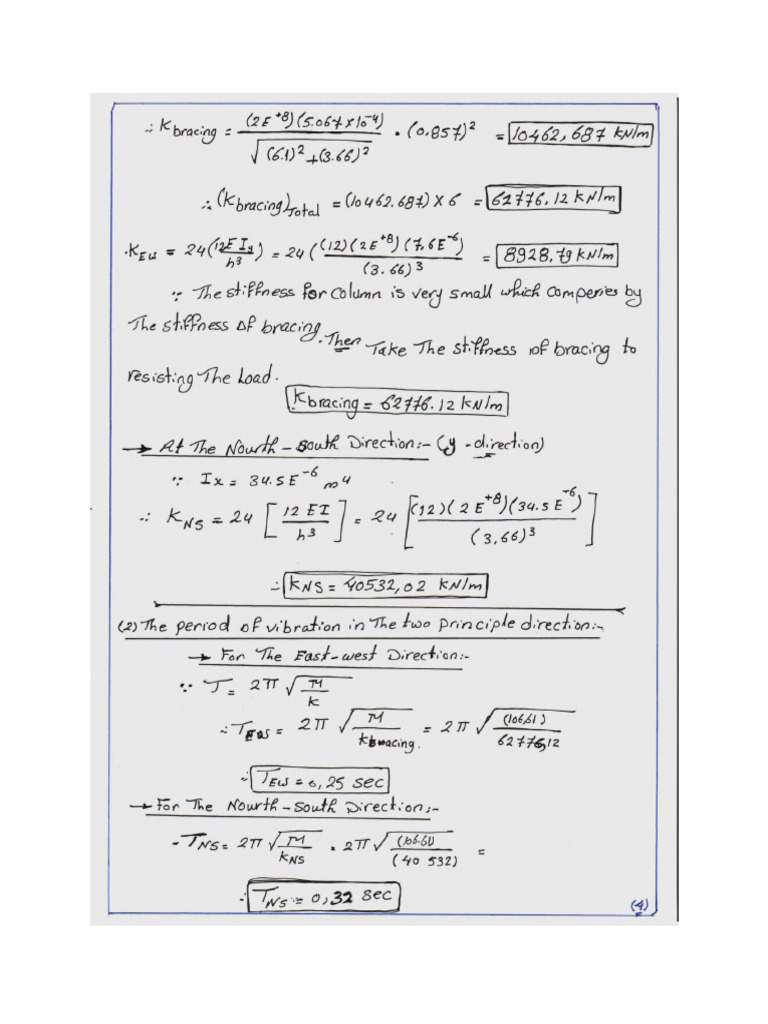 ∴ K bracing = (2E⁺⁸)(5.067×10⁻⁴) / √((6.1)² + (3.66)²) • (0.857)² = 10462,687 kN/m
∴ (K bracing)Total = (10462.687) × 6 = 62776.12 kN/m
• K_EW = 24 (12EIy / h³) = 24 ((12)(2E⁺⁸)(7,6E⁻⁶) / (3.66)³) = 8928,79 kN/m
∵ The stiffness for Column is very small which comperies by
The stiffness of bracing. Then Take The stiffness of bracing to
resisting The Load.
K bracing = 62776.12 kN/m
→ At The Nourth-South Direction:- (y-direction)
∵ Ix = 34.5E⁻⁶ m⁴
∴ K_NS = 24 [12 EI / h³] = 24 [(12)(2E⁺⁸)(34.5E⁻⁶) / (3,66)³]
∴ K_NS = 40532,02 kN/m
(2) The period of vibration in The two principle direction:-
→ For The East-west Direction:-
∵ T = 2π √(M / K)
∴ T_EW = 2π √(M / K bracing.) = 2π √((106,61) / 62776,12)
∴ T_EW = 0,25 sec
→ For The Nourth-South Direction:-
• T_NS = 2π √(M / K_NS) = 2π √((106.61) / (40 532)) =
∴ T_NS = 0,32 sec
(4)